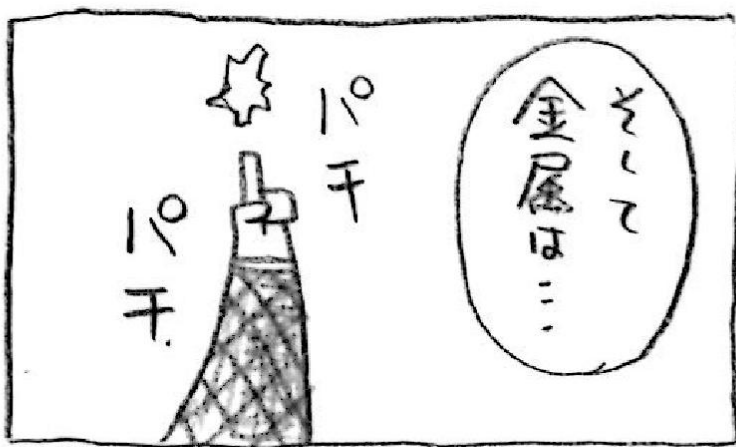 そして
金属は…
パチ
パチ